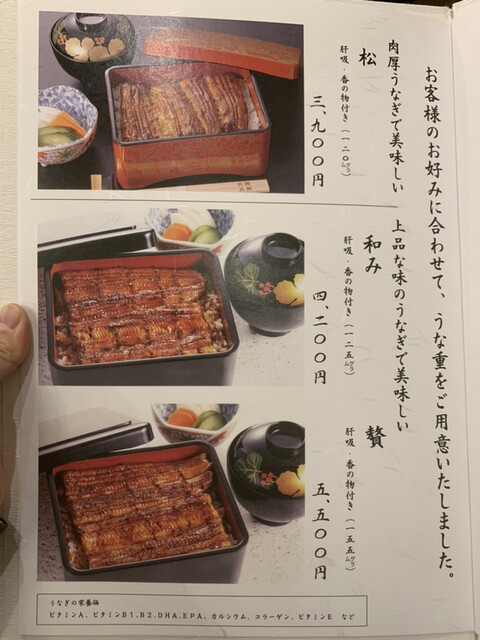 お客様のお好みに合わせて、うな重をご用意いたしました。
肉厚うなぎで美味しい
松
肝吸・香の物付き（一二〇グラム）
三、九〇〇円
上品な味のうなぎで美味しい
和み
肝吸・香の物付き（一二五グラム）
四、二〇〇円
贅
肝吸・香の物付き（一五五グラム）
五、五〇〇円
うなぎの栄養価
ビタミンA、ビタミンB1.B2.DHA.EPA、カルシウム、コラーゲン、ビタミンE など